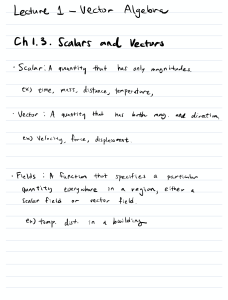 Lecture 1 – Vector Algebra
Ch 1.3. Scalars and Vectors
· Scalar: A quantity that has only magnitudes
ex) time, mass, distance, temperature,
· Vector : A quantity that has both mag. and direction
ex) Velocity, force, displacement.
· Fields : A function that specifies a particular
quantity everywhere in a region, either a
scalar field or vector field.
ex) temp. dist. in a building